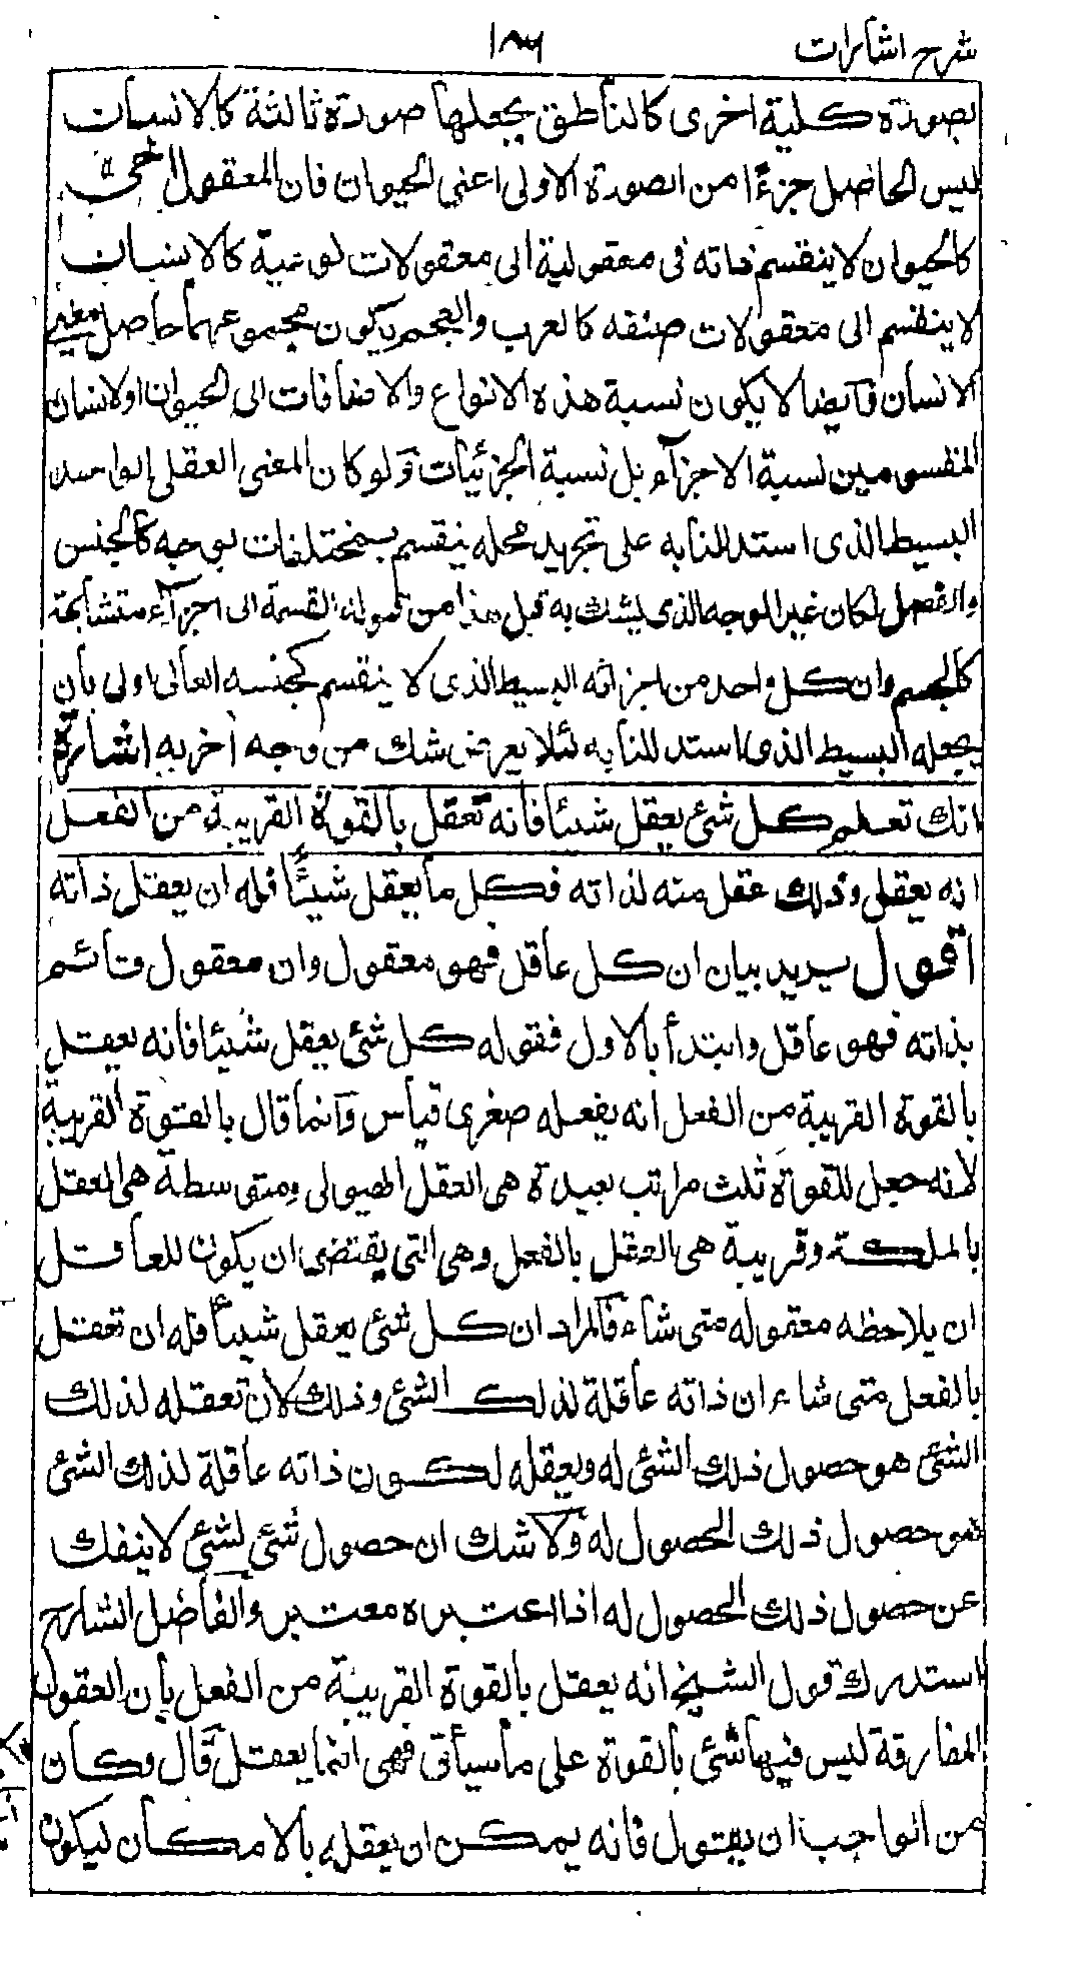 شرح اشارات
١٨٦
بصورة كلية اخرى كالناطق يجعلها صورة ثالثة كالانسان
ليس الحاصل جزءًا من الصورة الاولى اعنى الحيوان فان المعقول الجنسى
كالحيوان لا ينقسم ذاته فى معقوليته الى معقولات نوعية كالانسان
لا ينقسم الى معقولات صنفه كالعرب والعجم يكون مجموعهما حاصل معنى
الانسان وآيضا لا يكون نسبة هذه الانواع والاصنافات الى الحيوان اولانسان
المقسومين نسبة الاجزآء بل نسبة الجزئيات وَلو كان المعنى العقلى الواحد
البسيط الذى استدللنا به على تجريد محله ينقسم بمختلفات بوجه كالجنس
والفصل لكان غير الوجه الذى يشك به قبل هذا من قبوله القسمة الى اجزآء متشابهة
كالجسم وان كل واحد من اجزائه البسيط الذى لا ينقسم كجنسه العالى اولى بان
يجعله البسيط الذى استدللنا به لئلا يعرض شك من وجه آخر به اشارة
انك تعلم كل شئ يعقل شيئا فانه تعقل بالقوة القريبة من الفعل
انه يعقل وذلك عقل منه لذاته فكل ما يعقل شيئًا فله ان يعقل ذاته
اقول يريد بيان ان كل عاقل فهو معقول وان معقول قائم
بذاته فهو عاقل وابتدأ بالاول فقوله كل شئ يعقل شيئا فانه يعقل
بالقوة القريبة من الفعل انه يفعله صغرى قياس وَانما قال بالقوة القريبة
لانه جعل للقوة ثلث مراتب بعيدة هى العقل الهيولى ومتوسطة هى العقل
بالملكة وقريبة هى العقل بالفعل وهى التى يقتضى ان يكون للعاقل
ان يلاحظه معقوله متى شاء فَالمراد ان كل شئ يعقل شيئًا فله ان تعقل
بالفعل متى شاء ان ذاته عاقلة لذلك الشئ وذلك لان تعقله لذلك
الشئ هو حصول ذلك الشئ له ويعقله لكون ذاته عاقلة لذلك الشئ
هو حصول ذلك الحصول له وَلا شك ان حصول شئ لشئ لا ينفك
عن حصول ذلك الحصول له اذا اعتبره معتبر والفاضل الشارح
استدرك قول الشيخ انه يعقل بالقوة القريبة من الفعل بان العقول
المفارقة ليس فيها شئ بالقوة على ما سيأتى فهى انما يعقل قال وكان
من الواجب ان يقول فانه يمكن ان يعقله بالامكان ليكون